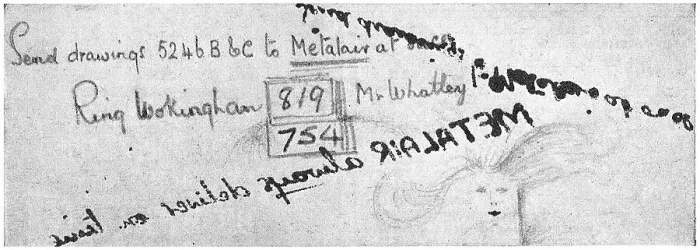 Send drawings 5246 B & C to Metalair at
Ring Wokingham 819 Mr Whatley
754
METALAIR always deliver on time